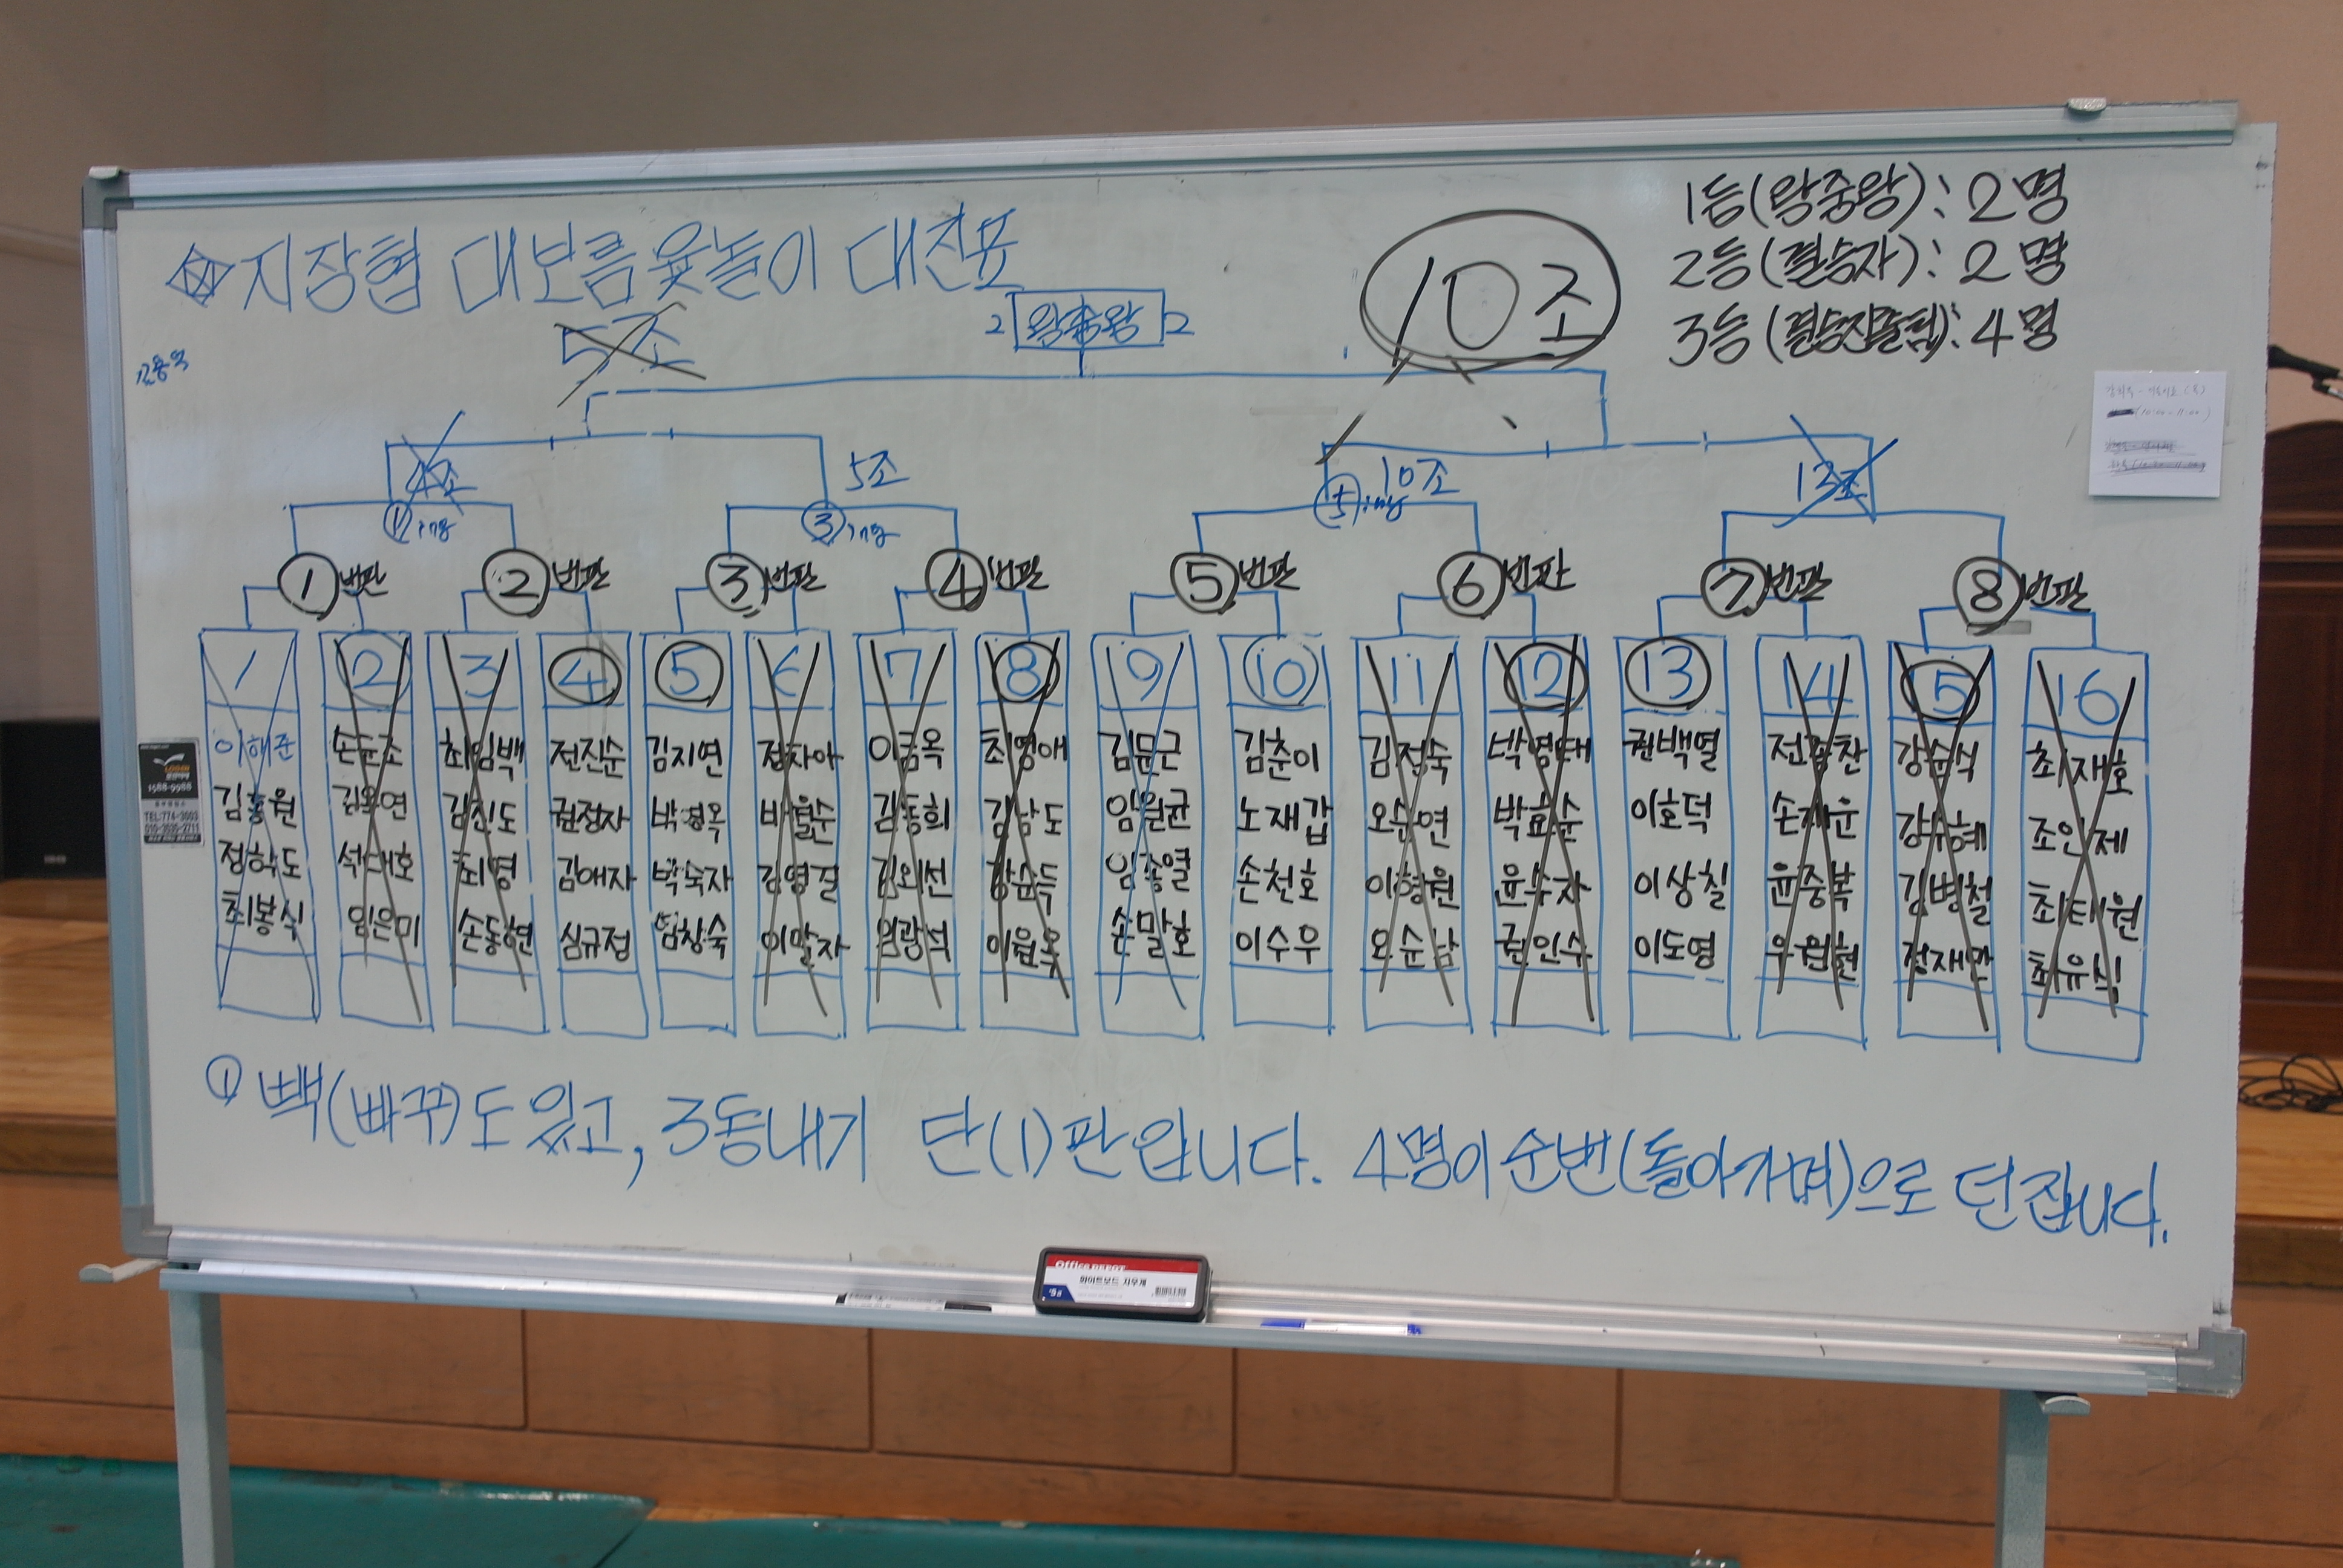 지장협 대보름윷놀이 대진표
1등(왕중왕): 2명
2등(결승자): 2명
3등(결승진출팀): 4명
10조
5조
2 왕중왕 2
4조
5조
10조
13조
①
③
⑤
① 번판
② 번판
③ 번판
④ 번판
⑤ 번판
⑥ 번판
⑦ 번판
⑧ 번판
1 2 3 4 5 6 7 8 9 10 11 12 13 14 15 16
이해준 손윤조 최임백 전진순 김지연 정차아 이금옥 최영애 김문근 김춘이 김정숙 박영태 권백열 강순식 최재호
김홍원 김옥연 김진도 권정자 박형옥 박월순 김동희 김남도 임월균 노재갑 오순연 박효순 이호덕 손재운 강수혜 조인제
정학도 석대호 최영 김애자 박숙자 김영길 김외선 황순득 임종열 손천호 이형원 윤수자 이상칠 윤중복 김병철 최태원
최봉식 임은미 손동현 심규정 임창숙 이말자 임광석 이원옥 손말호 이수우 오순남 권인수 이도영 우원현 정재만 최유식
① 빽(빠꾸)도 있고, 3동내기 단(1)판입니다. 4명이 순번(돌아가며)으로 던집니다.
LOGEN
1588-9988
TEL:774-3003
010-3535-2711
Office DEPOT
화이트보드 지우개